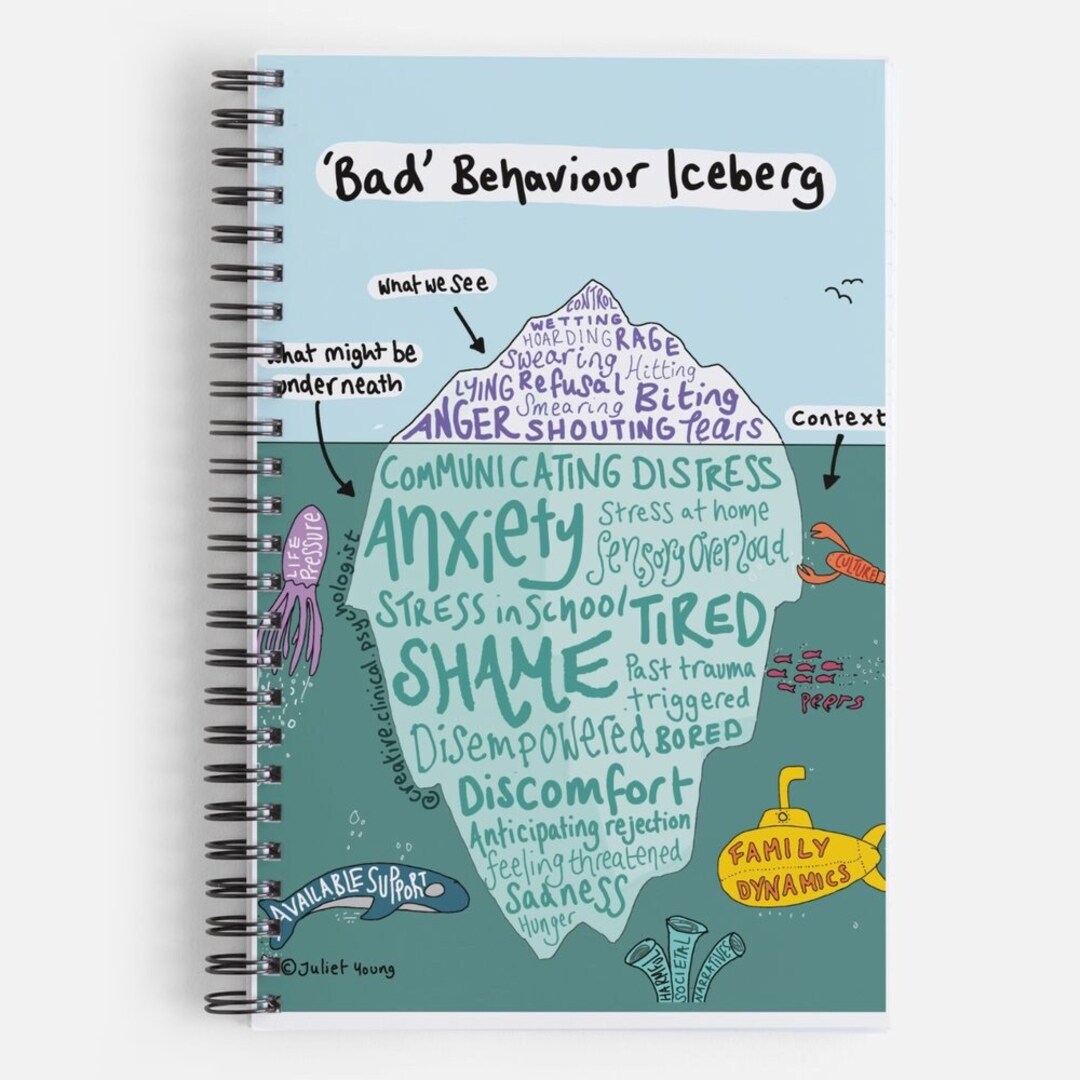 'Bad' Behaviour Iceberg
What we see
What might be
underneath
Context
CONTROL
WETTING
HOARDING RAGE
Swearing Hitting
LYING Refusal
Smearing Biting
ANGER SHOUTING Tears
COMMUNICATING DISTRESS
Anxiety Stress at home
Sensory Overload
STRESS in School TIRED
SHAME Past trauma
triggered
Disempowered BORED
Discomfort
Anticipating rejection
feeling threatened
Sadness
Hunger
LIFE
Pressure
@creative.clinical.psychologist
CULTURE
peers
FAMILY
DYNAMICS
AVAILABLE SUPPORT
HARMFUL
SOCIETAL
NARRATIVES
©Juliet Young